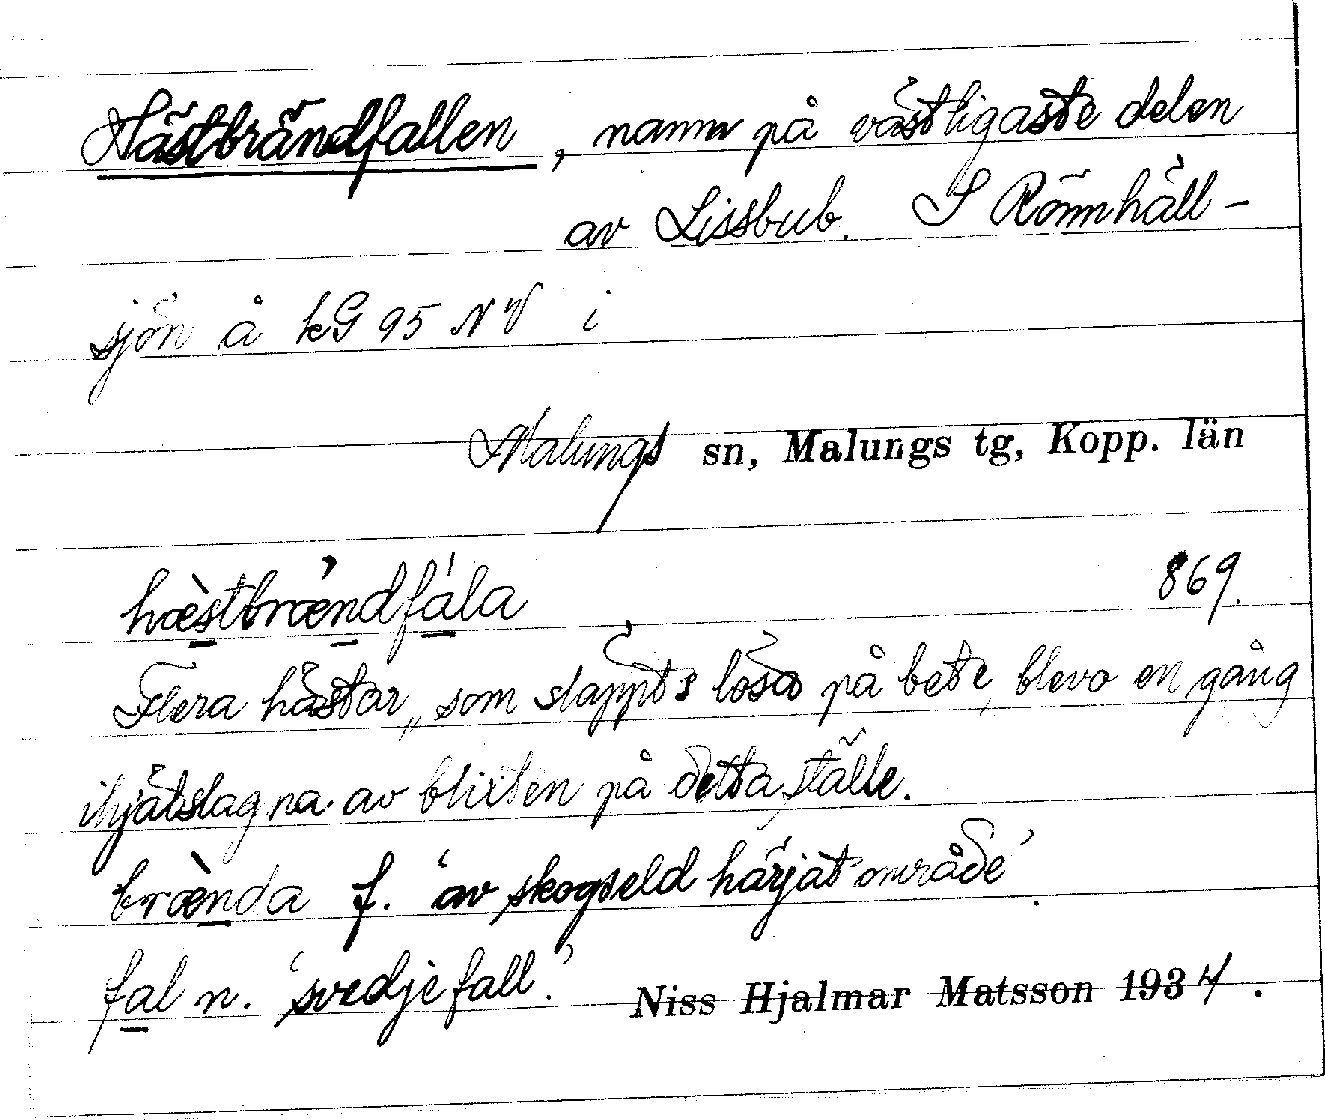 Hästbrändfallen, namn på västligaste delen
av Lissbub. S Rönnhäll-
sjön å kG 95 NV i
Malungs sn, Malungs tg, Kopp. län
hæ̀stbrændfála 869.
Flera hästar, som släppts lösa på bete, blevo en gång
ihjälslagna av blixten på detta ställe.
brænda f. 'av skogseld härjat område'.
fal n. 'svedjefall'. Niss Hjalmar Matsson 1934.